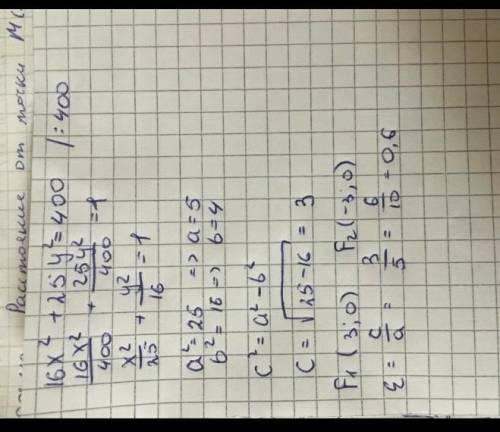 Расстояние от точки М(
16x² + 25y² = 400 | : 400
16x²/400 + 25y²/400 = 1
x²/25 + y²/16 = 1
a² = 25 => a = 5
b² = 16 => b = 4
c² = a² - b²
c = √25-16 = 3
F₁ (3; 0) F₂ (-3; 0)
ε = c/a = 3/5 = 6/10 = 0,6